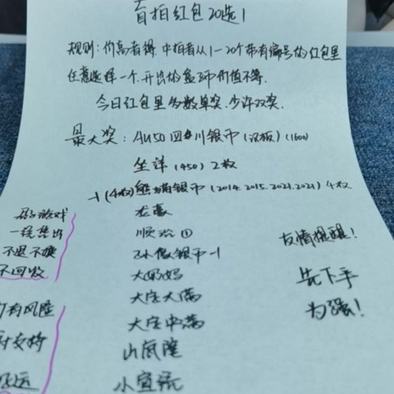 盲拍红包20选1
规则：价高者得，中拍者从1-20个带有编号的红包里
任意选择一个，开出的盘币价值不等。
今日红包里多数单奖，少许双奖。
最大奖：AU50 四川银币（汉版）（1600）
坐洋（450）2枚
-1（4枚）熊猫银币（2014.2015.2021.2021）4枚
龙毫
顺治
银币-1
大妈妈
大字大
大字中
山底隆
小宣统
游戏
一经售出
不退不换
不回收
有风险
支持
友情提醒！
先下手
为强！